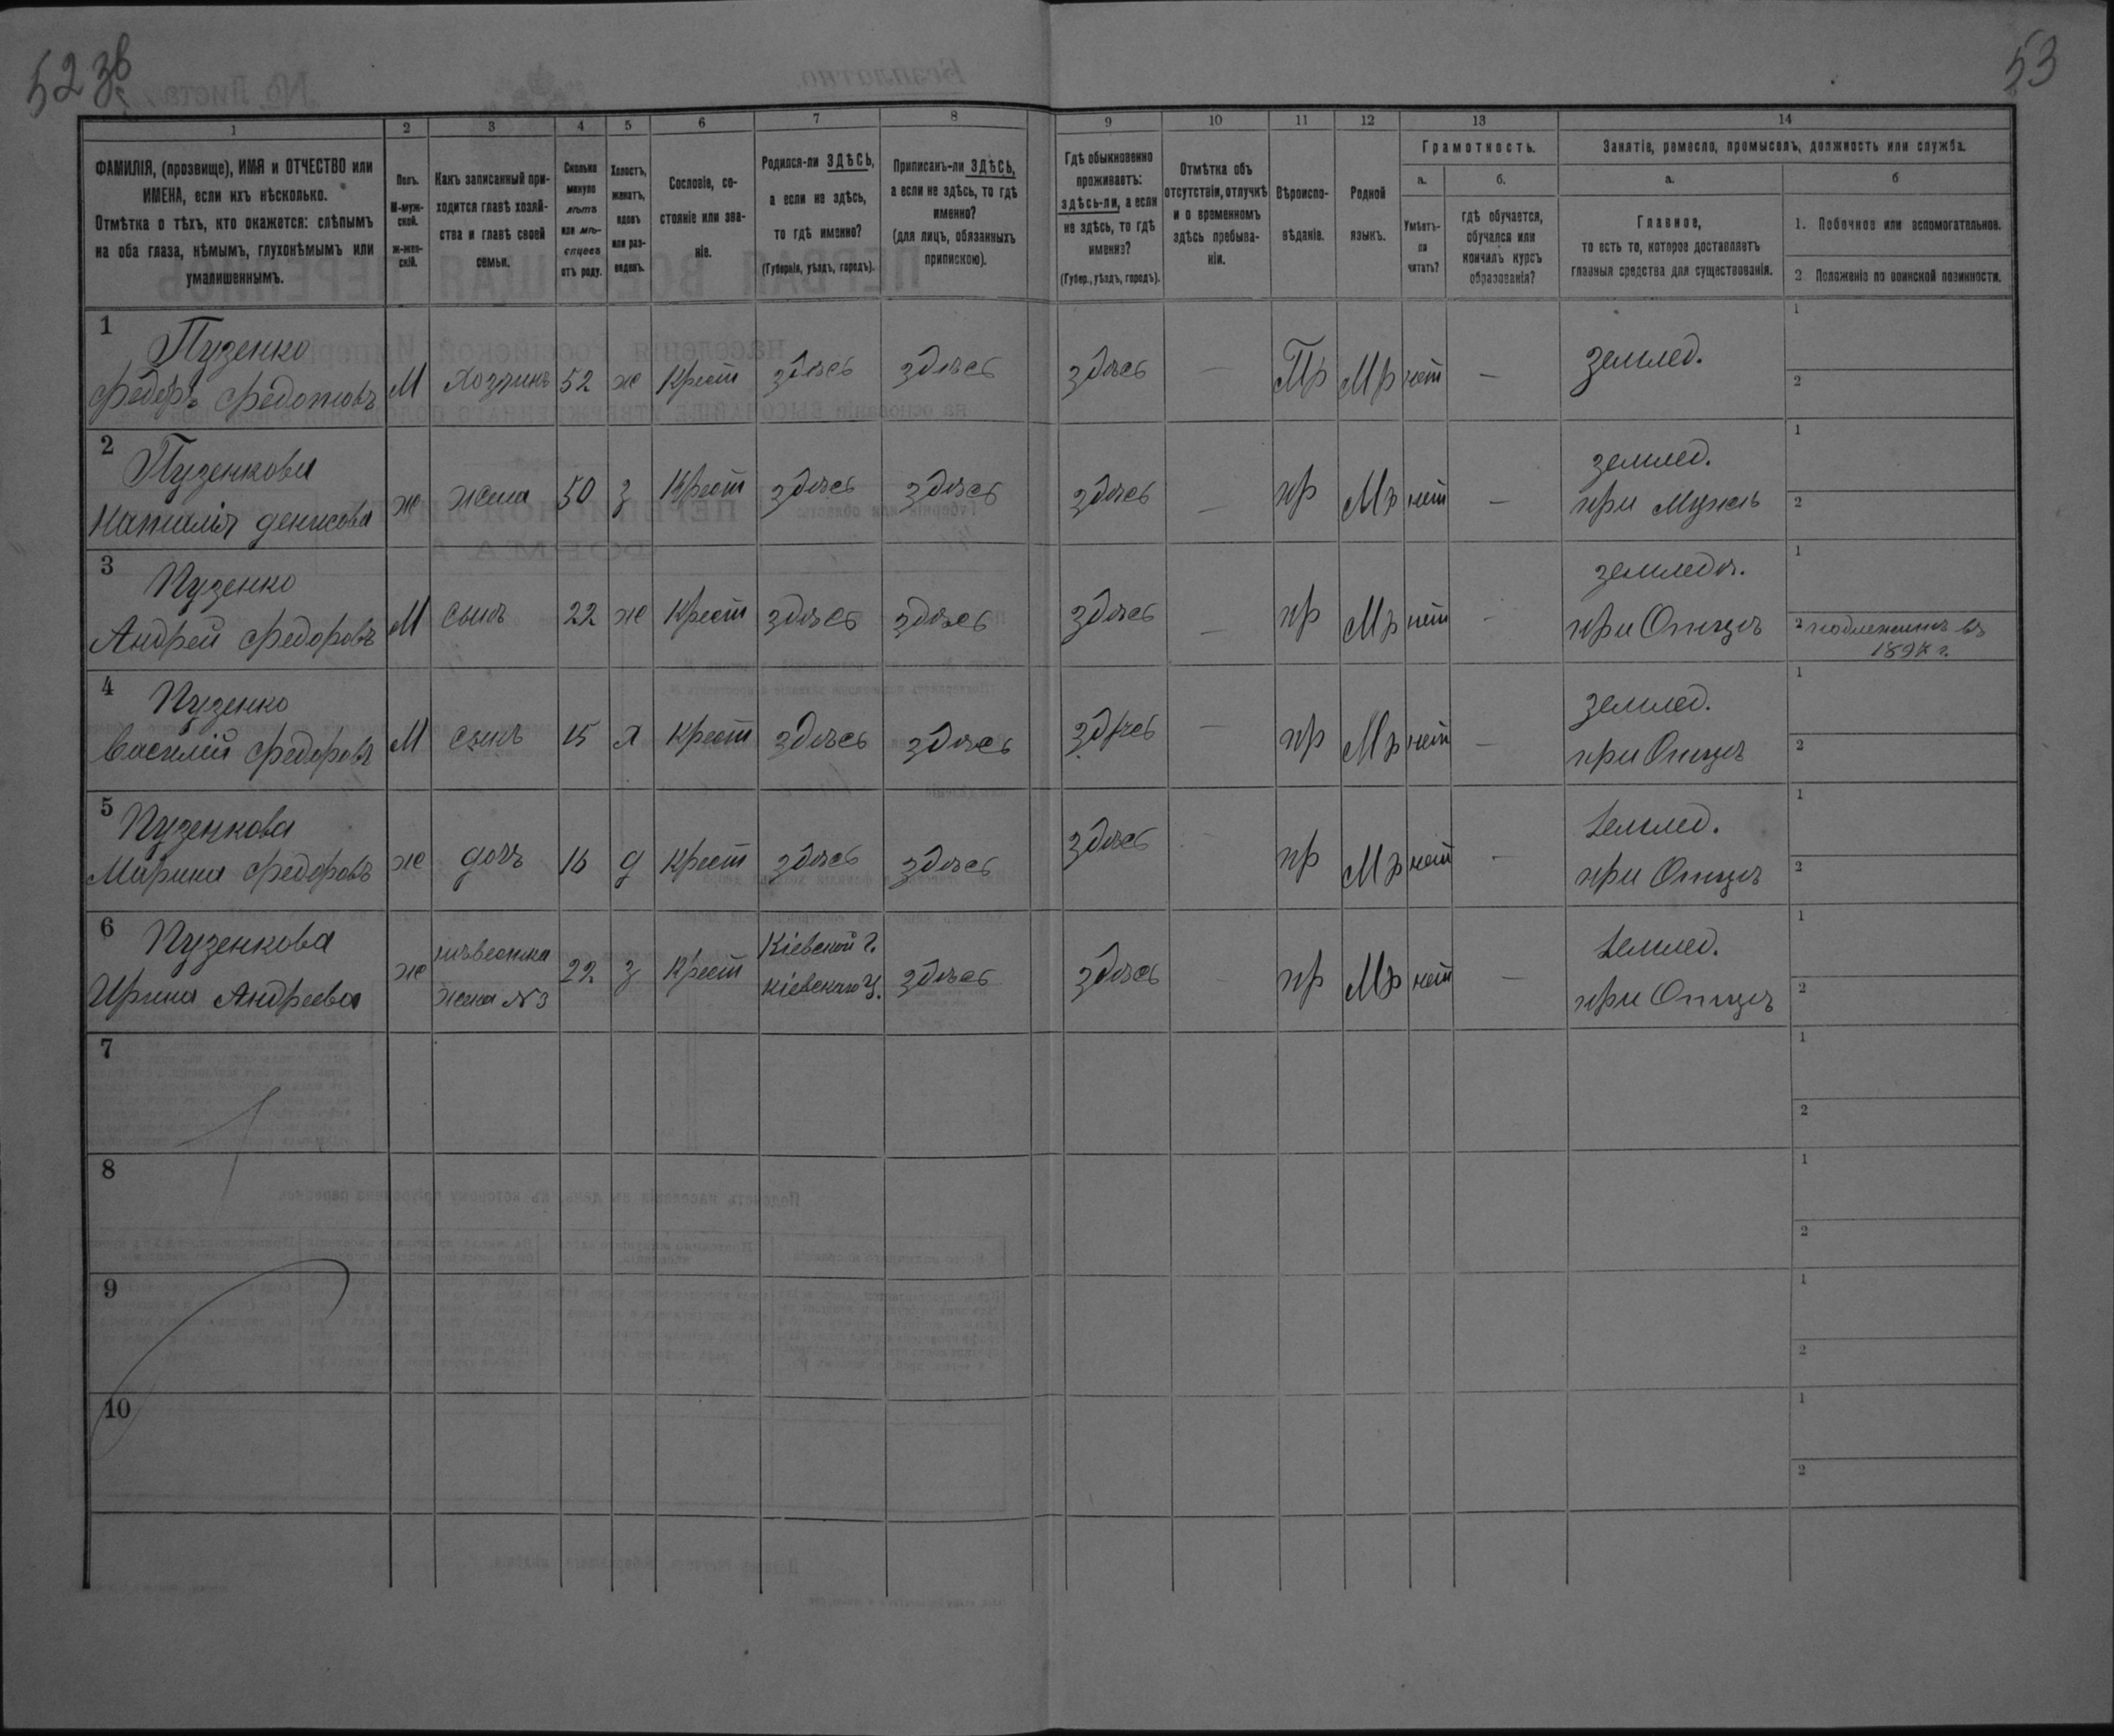 52 зв
53
1 2 3 4 5 6 7 8 9 10 11 12 13 14
ФАМИЛІЯ, (прозвище), ИМЯ и ОТЧЕСТВО или
ИМЕНА, если ихъ нѣсколько.
Отмѣтка о тѣхъ, кто окажется: слѣпымъ
на оба глаза, нѣмымъ, глухонѣмымъ или
умалишеннымъ.
Полъ.
М-муж-
ской.
ж-жен-
скій.
Какъ записанный при-
ходится главѣ хозяй-
ства и главѣ своей
семьи.
Сколько
минуло
лѣтъ
или мѣ-
сяцевъ
отъ роду.
Холостъ,
женатъ,
вдовъ
или раз-
веденъ.
Сословіе, со-
стояніе или зва-
ніе.
Родился-ли ЗДѢСЬ,
а если не здѣсь,
то гдѣ именно?
(Губернія, уѣздъ, городъ).
Приписанъ-ли ЗДѢСЬ,
а если не здѣсь, то гдѣ
именно?
(для лицъ, обязанныхъ
припискою).
Гдѣ обыкновенно
проживаетъ:
здѣсь-ли, а если
не здѣсь, то гдѣ
именно?
(Губер., уѣздъ, городъ).
Отмѣтка объ
отсутствіи, отлучкѣ
и о временномъ
здѣсь пребыва-
ніи.
Вѣроиспо-
вѣданіе.
Родной
языкъ.
Грамотность.
а.
Умѣетъ-
ли
читать?
б.
гдѣ обучается,
обучался или
кончилъ курсъ
образованія?
Занятіе, ремесло, промыселъ, должность или служба.
а.
Главное,
то есть то, которое доставляетъ
главныя средства для существованія.
б
1. Побочное или вспомогательное.
2 Положеніе по воинской повинности.
1 Пузенко
Федоръ Федотовъ М Хозяинъ 52 ж Крест здѣсь здѣсь здѣсь — Пр Мр нет — землед. 1 2
2 Пузенкова
Наталія Денисова ж жена 50 з Крест здѣсь здѣсь здѣсь — пр Мр нет — землед.
при Мужѣ 1 2
3 Пузенко
Андрей Федоровъ М сынъ 22 ж Крест здѣсь здѣсь здѣсь — пр Мр нет - земледѣ.
при Отцѣ 1 2 подлежитъ въ
189 г.
4 Пузенко
Василій Федоровъ М сынъ 15 х Крест здѣсь здѣсь здѣсь — пр Мр нет — землед.
при Отцѣ 1 2
5 Пузенкова
Марина Федоровъ ж дочъ 16 д Крест здѣсь здѣсь здѣсь - пр Мр нет - землед.
при Отцѣ 1 2
6 Пузенкова
Ирина Андреева ж нѣвестка
жена №3 22 з Крест Кіевской г.
Кіевскаго У. здѣсь здѣсь - пр Мр нет — землед.
при Отцѣ 1 2
7 1 2
8 1 2
9 1 2
10 1 2